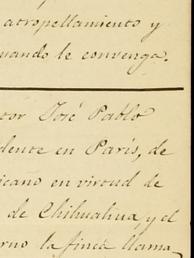 atropellamiento y
uando le convenga.
tor José Pablo
dente en París, de
icano en virtud de
de Chihuahua, y el
rno la finca llama